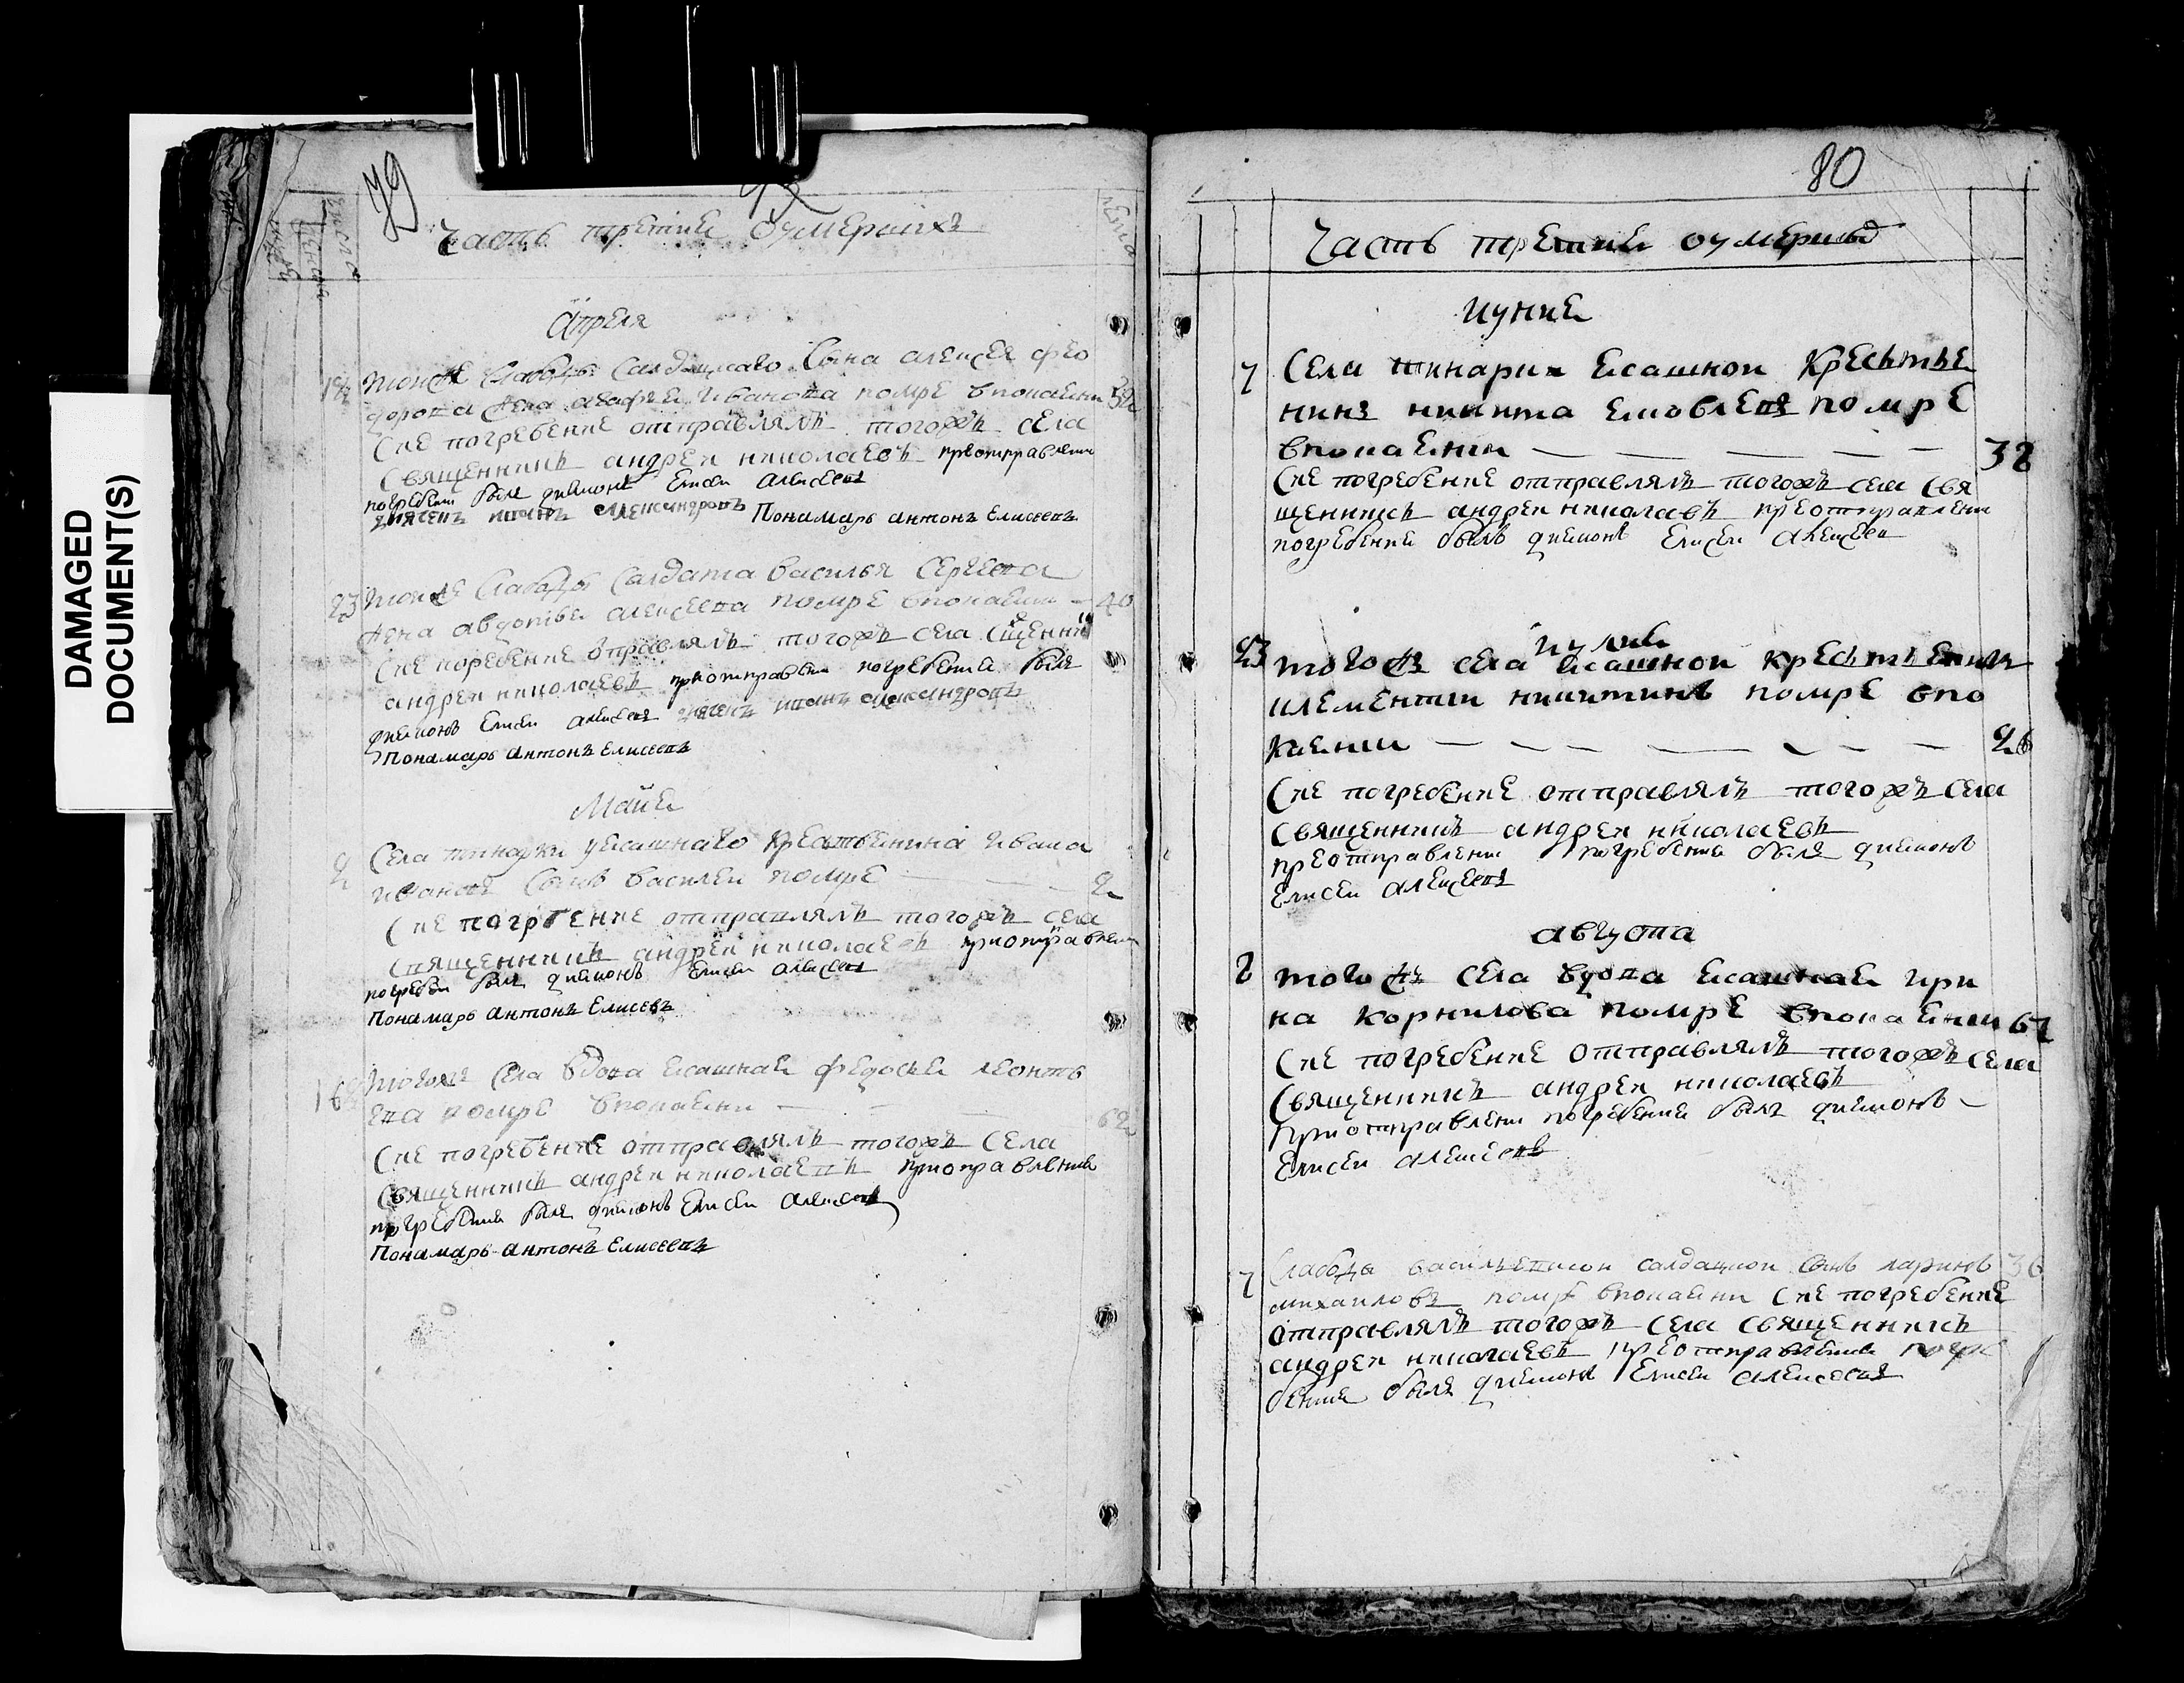 DAMAGED
DOCUMENT(S)
79
Часть третие оумерших
лета
Априля
тоиже слабоды салдацкаго сына алексея фео
дорова жена агафья иванова помре впокаении
Сие погребение отправлялъ тогожъ села
Священникъ андреи николаевъ приотправлении
погребени былъ диаконъ Елисеи алексеевъ
дьячекъ иванъ александровъ Понамарь антонъ Елисеевъ
23 тоиже слабоды салдата василья Сергеева 40
жена авдотья алексеева помре впокаении
Сие поребение оправлялъ тогожъ села Сщенни
андреи николаевъ приотправлени погребения былъ
диаконъ Елисеи алексеевъ дьячекъ иванъ александровъ
Понамарь антонъ Елисеевъ
Маиа
2 Села ясашнаго крестьянина ивана
ивановъ сынъ василеи помре 2
Сие погрбение отправлялъ тогожъ села
Священникъ андреи николаевъ приотправлени
погребени былъ диаконъ Елисеи алексеевъ
Понамарь антонъ Елисевъ
16 тогожъ села вдова ясашнае федосеи леонть
ева помре впокаени 62
Сие погребение отправлялъ тогожъ села
Священникъ андреи николаевъ приоправление
погребения былъ диаконъ Елисеи алексеевъ
Понамарь антонъ Елисеевъ
80
Часть третие оумершыхъ
иуние
7 Села ясашнои Кресьтье
нинъ никита помре
впокаении 38
Сие погребение отправлялъ тогожъ села Свя
щенникъ андреи николавъ преотправлени
погребение былъ диаконъ Елисеи алексеев
иулие
23 тогожъ села ясашнои кресьтьенинъ
клементии никитинъ помре впо
каении 26
Сие погребение отправлялъ тогожъ села
Священникъ андреи николаевъ
преотправлени погребение былъ диаконъ
Елисеи алексеевъ
августа
8 тогожъ села вдова ясашнае ири
на корнилова помре впокаении 67
Сие погребение отправлялъ тогожъ села
Священникъ андреи николаевъ
Приотправлени погребение былъ диаконъ
Елисеи алексеевъ
7 Слабоды васильевскои салдацкои сынъ ларионъ 36
михаиловъ помре впокаени Сие погребение
отправлялъ тогожъ села священникъ
андреи николаевъ преотправление погре
бение былъ диаконъ Елисеи алексеевъ